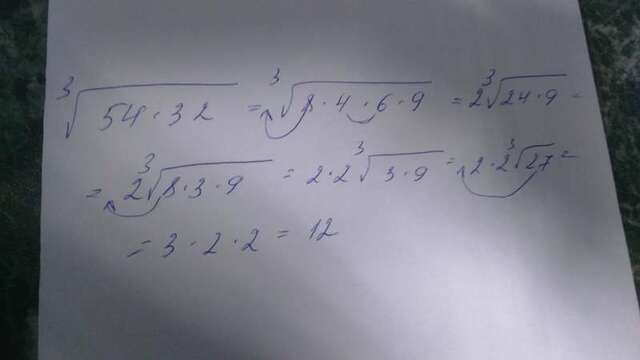 ∛(54·32) = ∛(8·4·6·9) = 2∛(24·9) =
= 2∛(8·3·9) = 2·2∛(3·9) = 2·2∛27 =
= 3·2·2 = 12